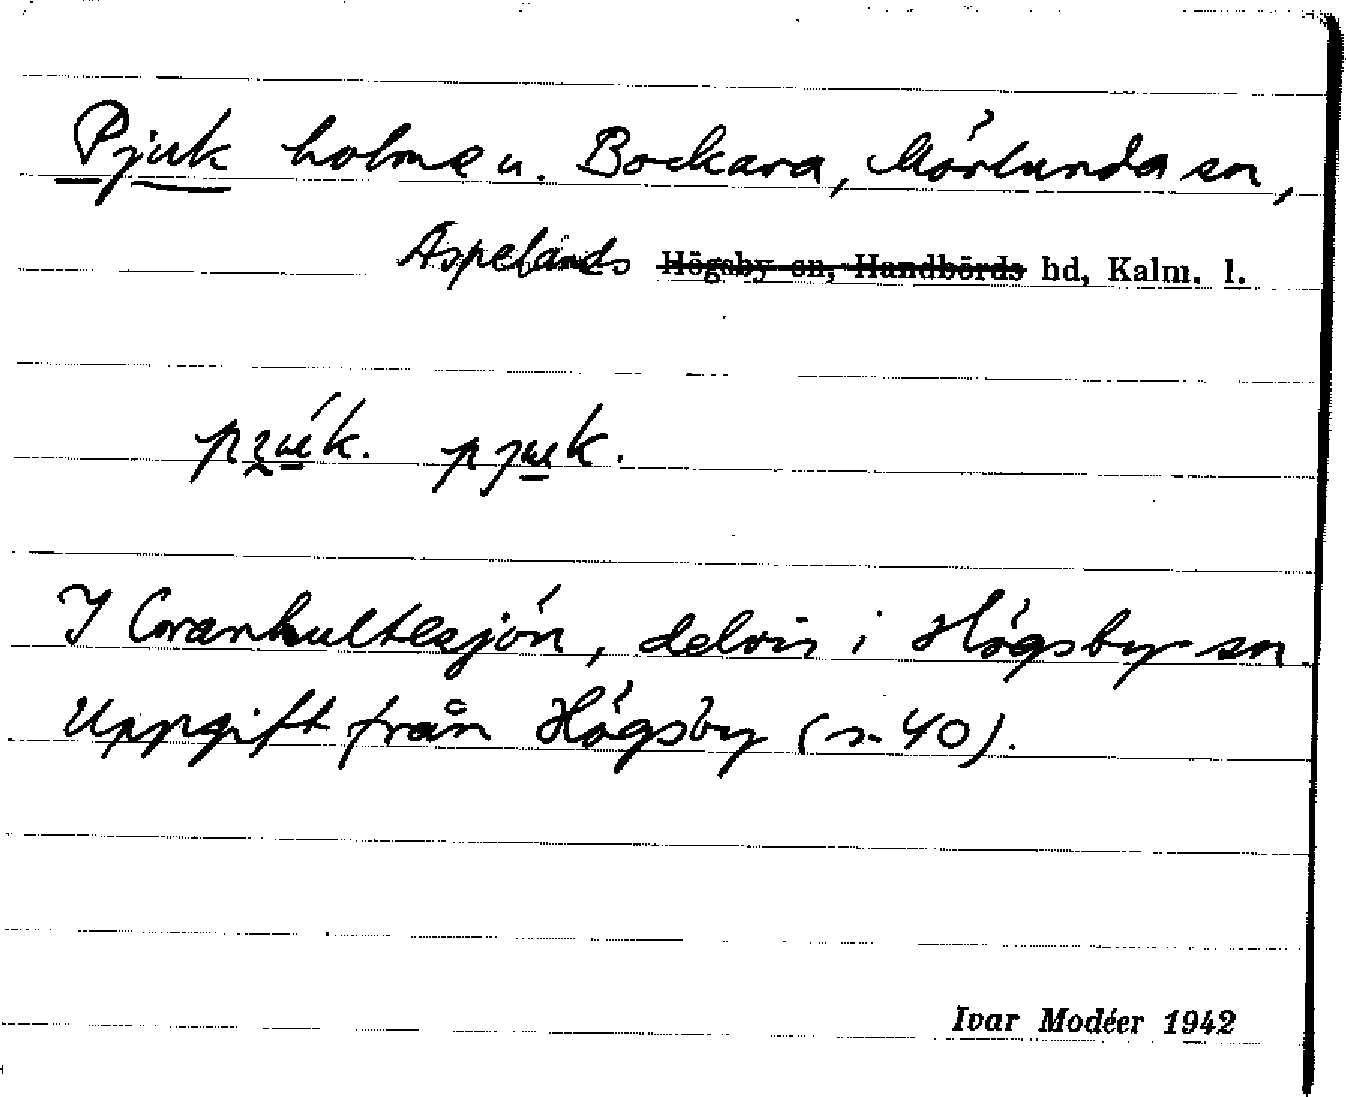 Pjuk holme u. Bockara, Mörlunda sn,
Aspelands Högsby sn, Handbörds hd, Kalm. l.
I Cranhultesjön, delvis i Högsby sn.
Uppgift från Högsby (s. 40).
Ivar Modéer 1942